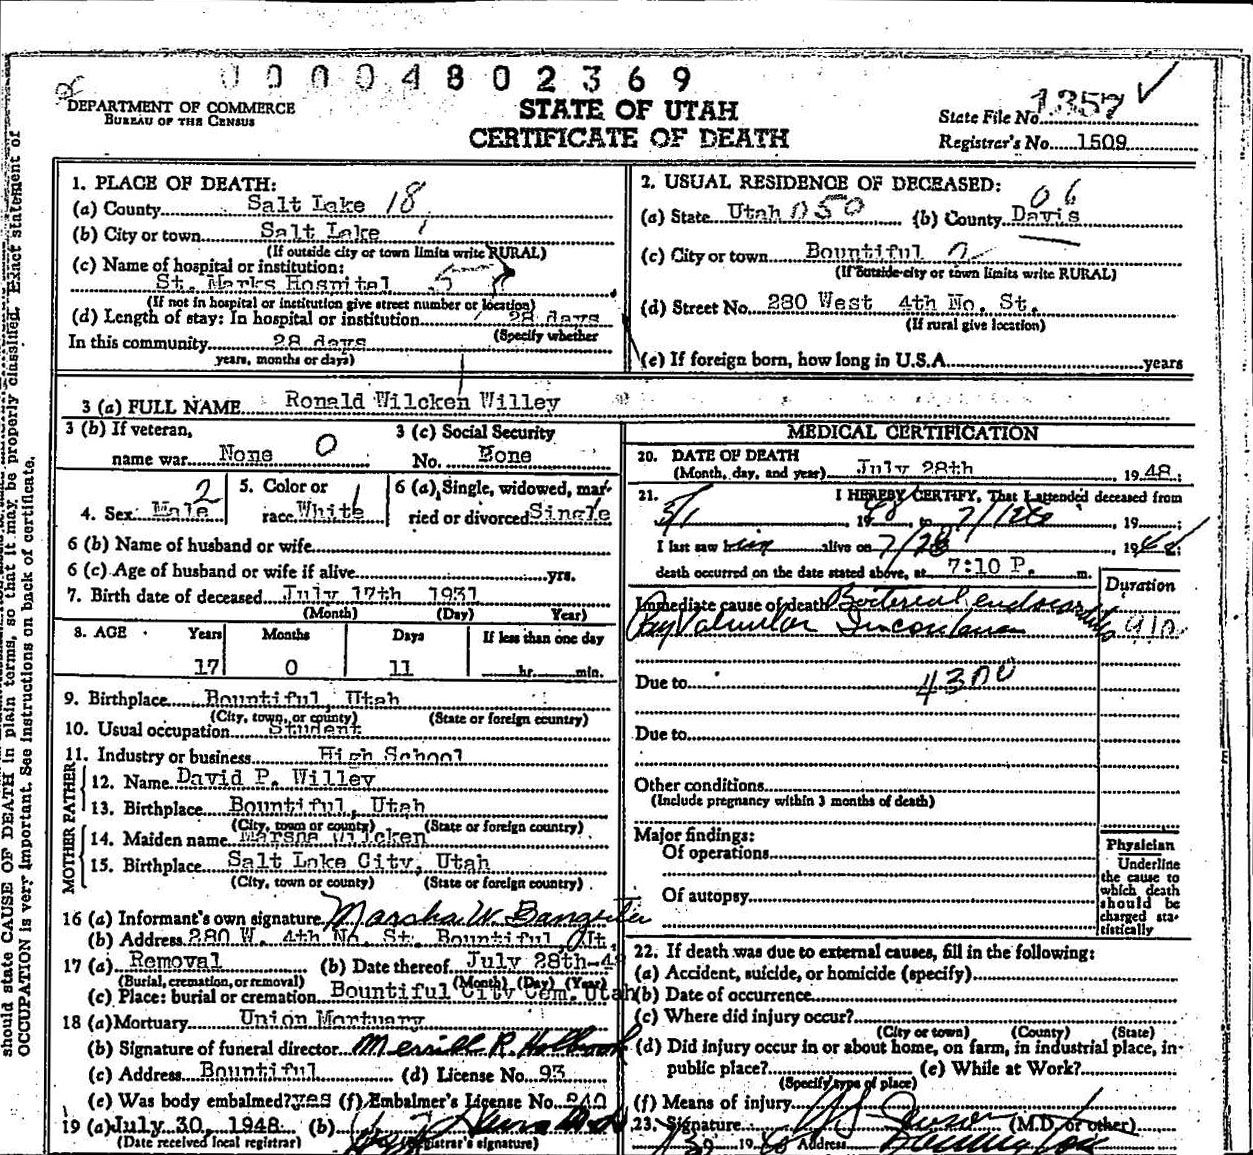 00004802369
DEPARTMENT OF COMMERCE
BUREAU OF THE CENSUS
STATE OF UTAH
CERTIFICATE OF DEATH
State File No. 1357 ✓
Registrar's No. 1509
should state CAUSE OF DEATH in plain terms, so that it may be properly classified. Exact statement of
OCCUPATION is very important. See instructions on back of certificate.
1. PLACE OF DEATH:
(a) County Salt Lake 18
(b) City or town Salt Lake
(If outside city or town limits write RURAL)
(c) Name of hospital or institution:
St. Marks Hospital 5
(If not in hospital or institution give street number or location)
(d) Length of stay: In hospital or institution 28 days
(Specify whether
In this community 28 days
years, months or days)
2. USUAL RESIDENCE OF DECEASED:
06
(a) State Utah 050 (b) County Davis
(c) City or town Bountiful 2
(If outside city or town limits write RURAL)
(d) Street No. 280 West 4th No. St.
(If rural give location)
(e) If foreign born, how long in U.S.A. years
3 (a) FULL NAME Ronald Wilcken Willey
3 (b) If veteran,
name war None 0
3 (c) Social Security
No. None
4. Sex Male 2
5. Color or
race White 1
6 (a) Single, widowed, married
or divorced Single
6 (b) Name of husband or wife
6 (c) Age of husband or wife if alive yrs.
7. Birth date of deceased July 17th 1931
(Month) (Day) Year)
8. AGE Years Months Days If less than one day
17 0 11 hr. min.
9. Birthplace Bountiful, Utah
(City, town, or county) (State or foreign country)
10. Usual occupation Student
11. Industry or business High School
FATHER
12. Name David P. Willey
13. Birthplace Bountiful, Utah
(City, town or county) (State or foreign country)
MOTHER
14. Maiden name Wilcken
15. Birthplace Salt Lake City, Utah
(City, town or county) (State or foreign country)
16 (a) Informant's own signature Marsha W. Bangerter
(b) Address 280 W. 4th No. St. Bountiful, Ut.
17 (a) Removal (b) Date thereof July 28th-48
(Burial, cremation, or removal) (Month) (Day) (Year)
(c) Place: burial or cremation Bountiful City Cem. Utah
18 (a) Mortuary Union Mortuary
(b) Signature of funeral director Merrill R. Holbrook
(c) Address Bountiful (d) License No. 93
(e) Was body embalmed? yes (f) Embalmer's License No. 240
19 (a) July 30, 1948 (b)
(Date received local registrar) (Registrar's signature)
MEDICAL CERTIFICATION
20. DATE OF DEATH
(Month, day, and year) July 28th 1948;
21. I HEREBY CERTIFY, That I attended deceased from
5/1, 1948, to 7/28, 19 ;
I last saw him alive on 7/28, 1948;
death occurred on the date stated above, at 7:10 P. m.
Duration
Immediate cause of death Bacterial endocarditis
Valvular
Due to 4300
Due to
Other conditions
(Include pregnancy within 3 months of death)
Major findings:
Of operations
Of autopsy
Physician
Underline
the cause to
which death
should be
charged sta-
tistically
22. If death was due to external causes, fill in the following:
(a) Accident, suicide, or homicide (specify)
(b) Date of occurrence
(c) Where did injury occur?
(City or town) (County) (State)
(d) Did injury occur in or about home, on farm, in industrial place, in
public place? (e) While at Work?
(Specify type of place)
(f) Means of injury
23. Signature (M.D. or other)
1948 Address